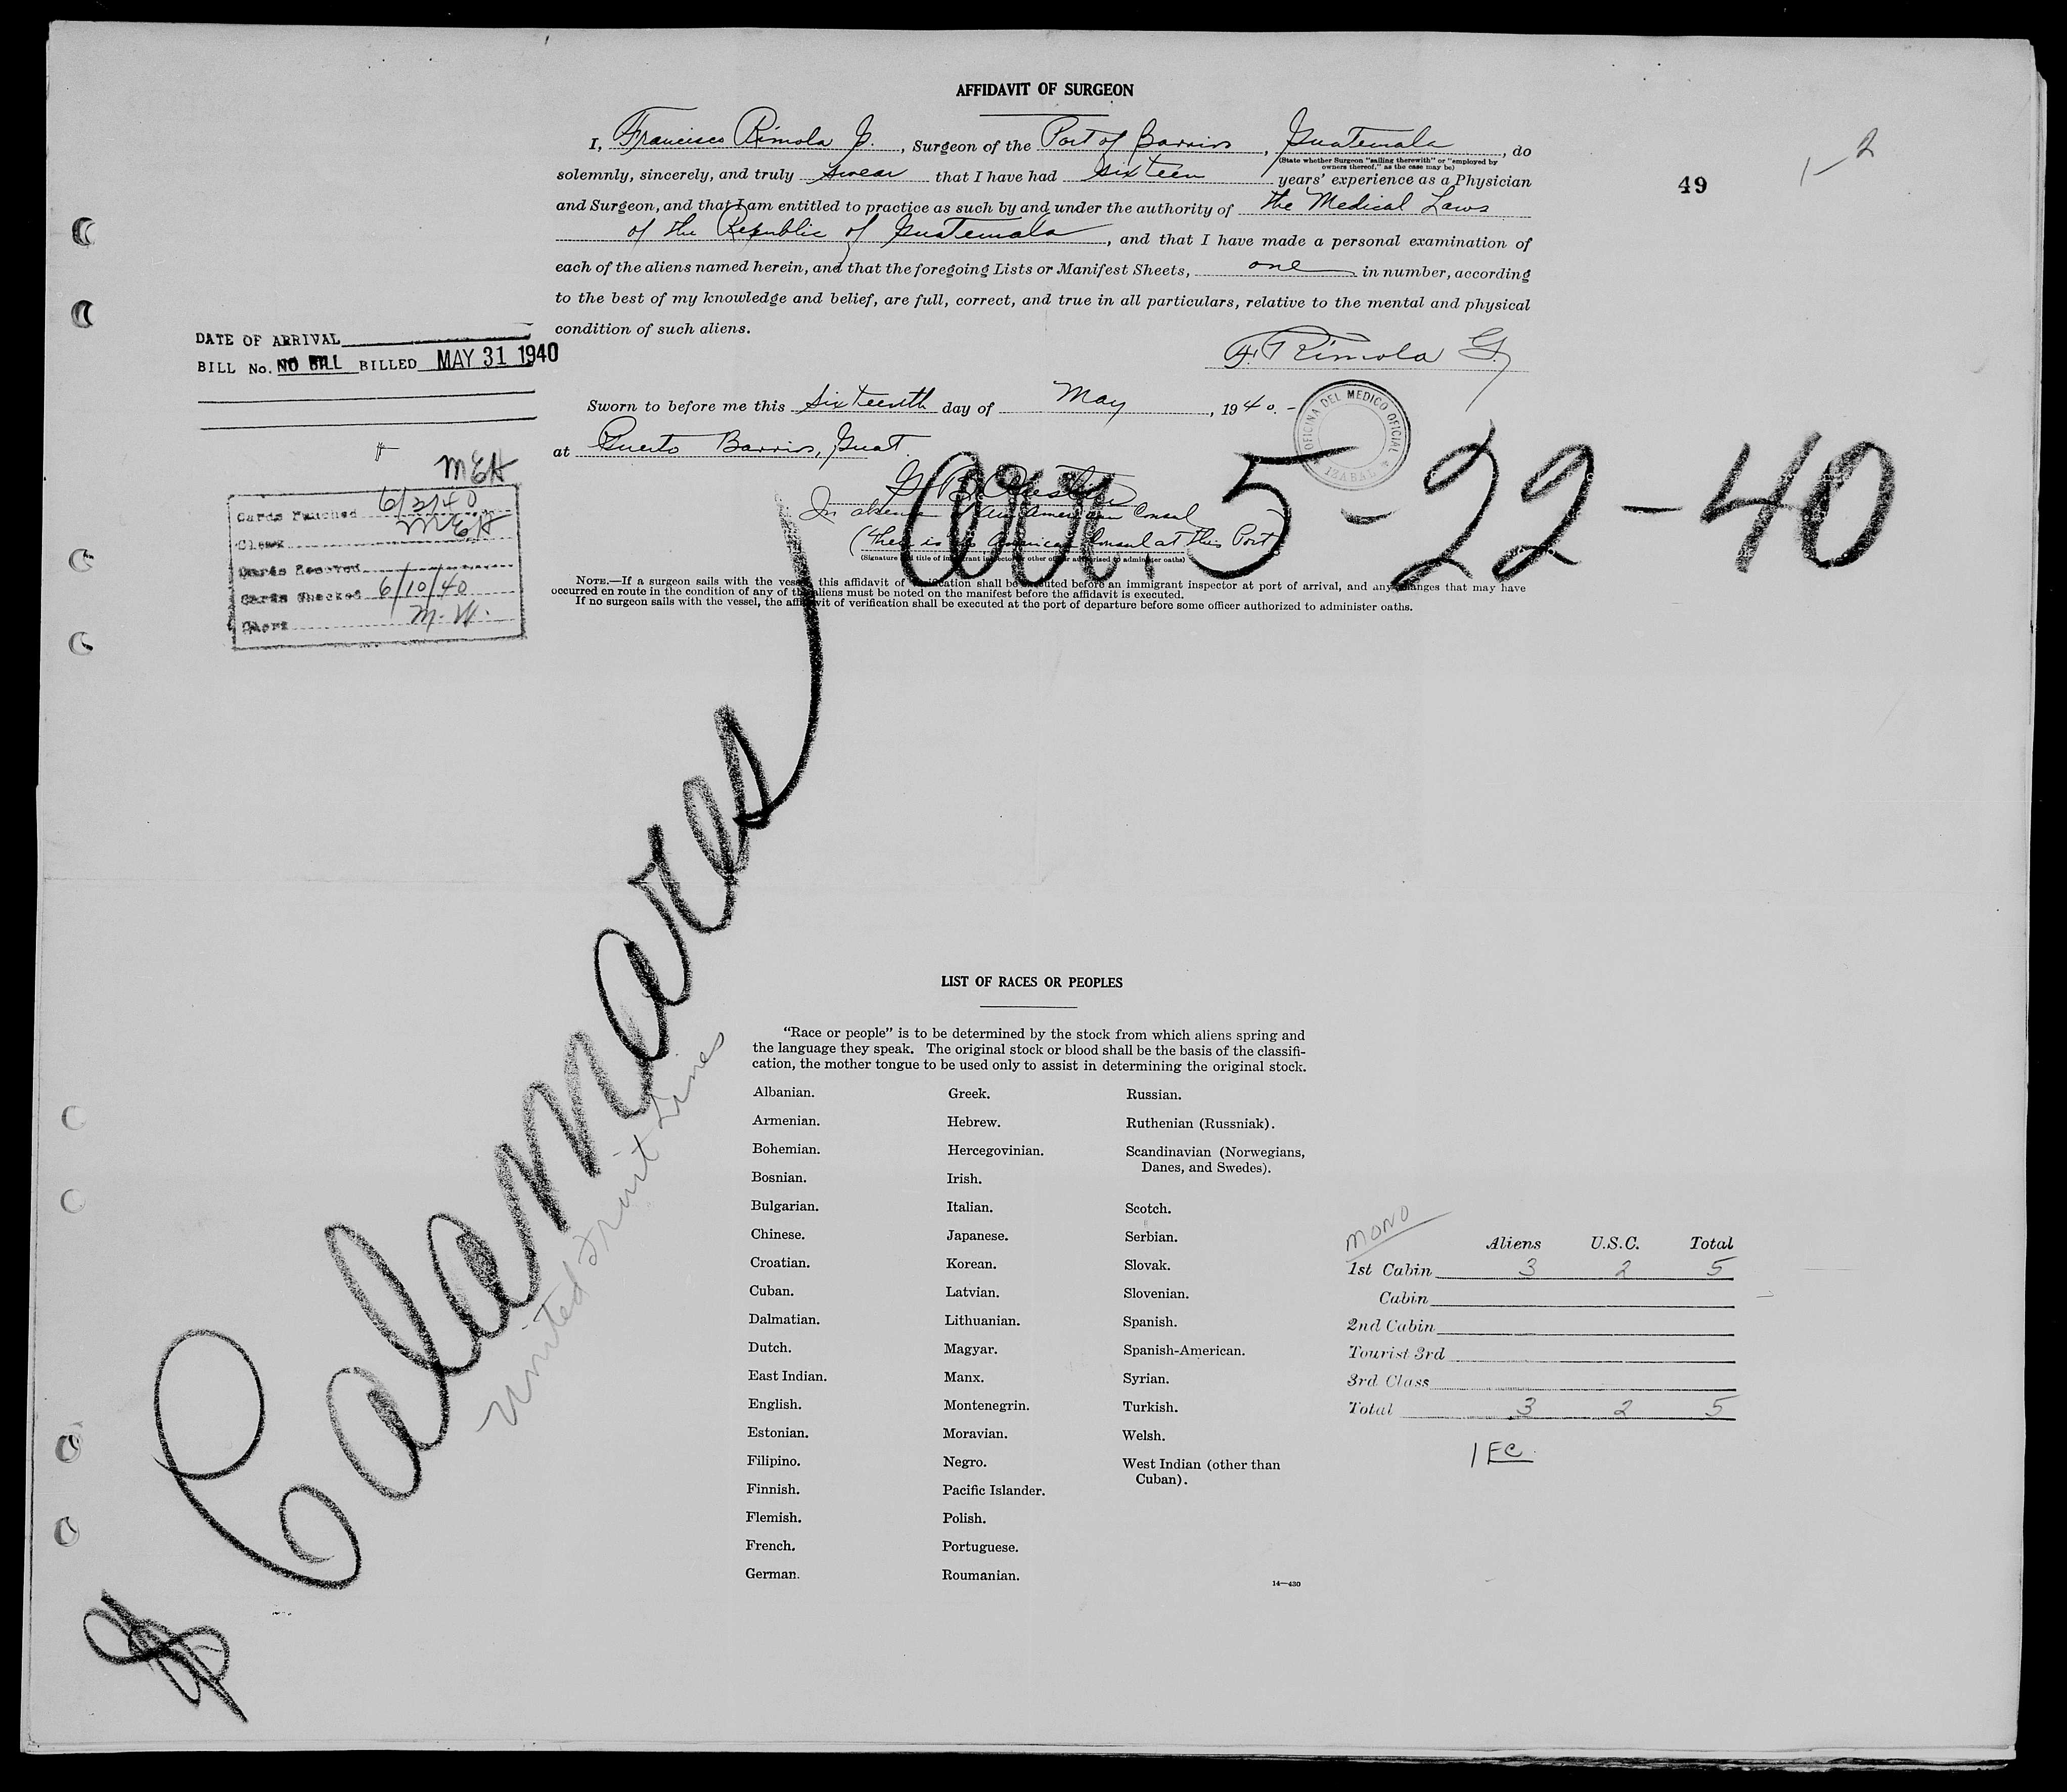 AFFIDAVIT OF SURGEON
I, Francisco Rimola G., Surgeon of the Port of Barrios, Guatemala, do
(State whether Surgeon "sailing therewith" or "employed by owners thereof," as the case may be)
solemnly, sincerely, and truly swear that I have had sixteen years' experience as a Physician
and Surgeon, and that I am entitled to practice as such by and under the authority of the Medical Laws
of the Republic of Guatemala, and that I have made a personal examination of
each of the aliens named herein, and that the foregoing Lists or Manifest Sheets, one in number, according
to the best of my knowledge and belief, are full, correct, and true in all particulars, relative to the mental and physical
condition of such aliens.
F. Rimola G.
49
1-2
DATE OF ARRIVAL
BILL No. NO BILL BILLED MAY 31 1940
Sworn to before me this sixteenth day of May, 1940.-
at Puerto Barrios, Guat.
OFICINA DEL MEDICO OFICIAL
IZABAL
In absence American Consul
(There is no American Consul at this Port)
Arr. 5-22-40
MEH
Cards Punched 6/3/40
Clerk MEH
Cards Received
Cards Checked 6/10/40
Clerk M.W.
NOTE.—If a surgeon sails with the vessel this affidavit of verification shall be executed before an immigrant inspector at port of arrival, and any changes that may have
occurred en route in the condition of any of the aliens must be noted on the manifest before the affidavit is executed.
If no surgeon sails with the vessel, the affidavit of verification shall be executed at the port of departure before some officer authorized to administer oaths.
SS Calamares
United Fruit Lines
LIST OF RACES OR PEOPLES
"Race or people" is to be determined by the stock from which aliens spring and
the language they speak. The original stock or blood shall be the basis of the classifi-
cation, the mother tongue to be used only to assist in determining the original stock.
Albanian.
Armenian.
Bohemian.
Bosnian.
Bulgarian.
Chinese.
Croatian.
Cuban.
Dalmatian.
Dutch.
East Indian.
English.
Estonian.
Filipino.
Finnish.
Flemish.
French.
German.
Greek.
Hebrew.
Hercegovinian.
Irish.
Italian.
Japanese.
Korean.
Latvian.
Lithuanian.
Magyar.
Manx.
Montenegrin.
Moravian.
Negro.
Pacific Islander.
Polish.
Portuguese.
Roumanian.
Russian.
Ruthenian (Russniak).
Scandinavian (Norwegians,
Danes, and Swedes).
Scotch.
Serbian.
Slovak.
Slovenian.
Spanish.
Spanish-American.
Syrian.
Turkish.
Welsh.
West Indian (other than
Cuban).
14—430
MONO
Aliens U.S.C. Total
1st Cabin 3 2 5
Cabin
2nd Cabin
Tourist 3rd
3rd Class
Total 3 2 5
1 EC